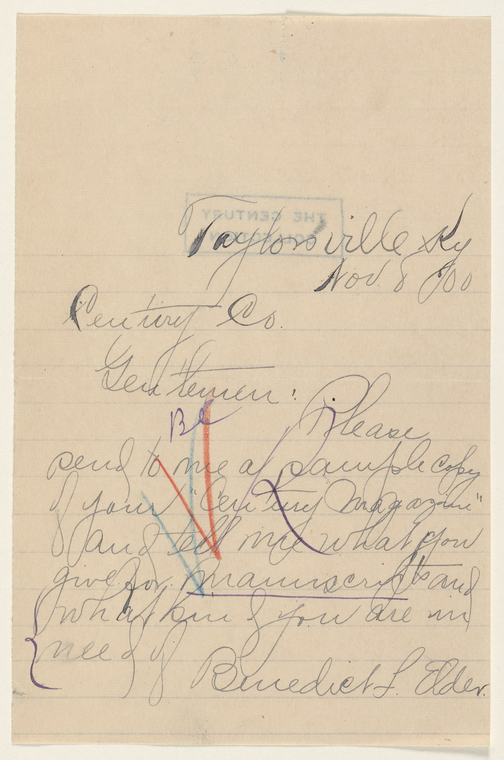 THE CENTURY
COLLECTION
Taylorsville Ky
Nov. 8 /00
Century Co.
Gentlemen:
Be
Please
send to me a sample copy
of your "Century Magazine"
and tell me what you
give for manuscripts and
what kind you are in
need of
Benedict L. Elder.